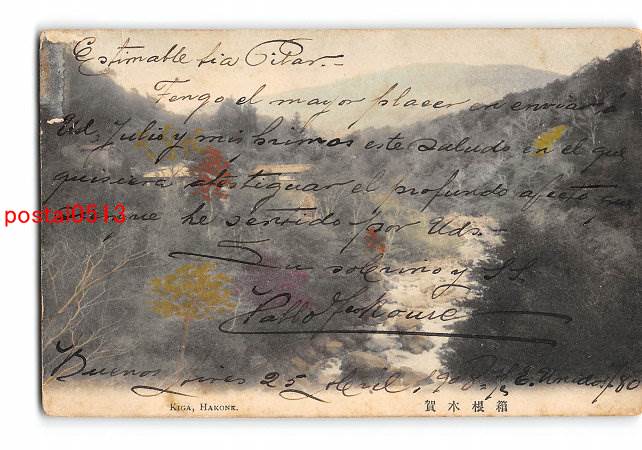 Estimable tia Pilar.-
Tengo el mayor placer en enviar á
Ud, Julio y mis primos este saludo en el que
quisiera atestiguar el profundo afecto
que he sentido por Uds.-
Su sobrino y S.S.
Pablo
Buenos Aires 25 Abril, 1908. E. Unidos 180
postal0513
KIGA, HAKONE.
箱根木賀